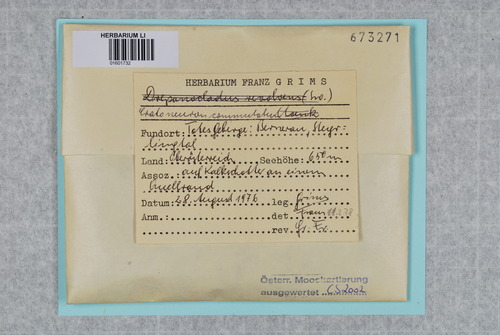 HERBARIUM LI
01601732
673271
HERBARIUM FRANZ GRIMS
Drepanocladus revolvens (Sw.)
Cratoneuron commutatum
Fundort: Totes Gebirge: Bernerau, Steyr-
lingtal
Land: Oberösterreich Seehöhe: 650 m
Assoz. auf Kalkscholle an einem
Quellrand
Datum: 28. August 1976 leg. Grims
Anm. det.
rev. Gr. Fr.
Österr. Mooskartierung
ausgewertet CS2002